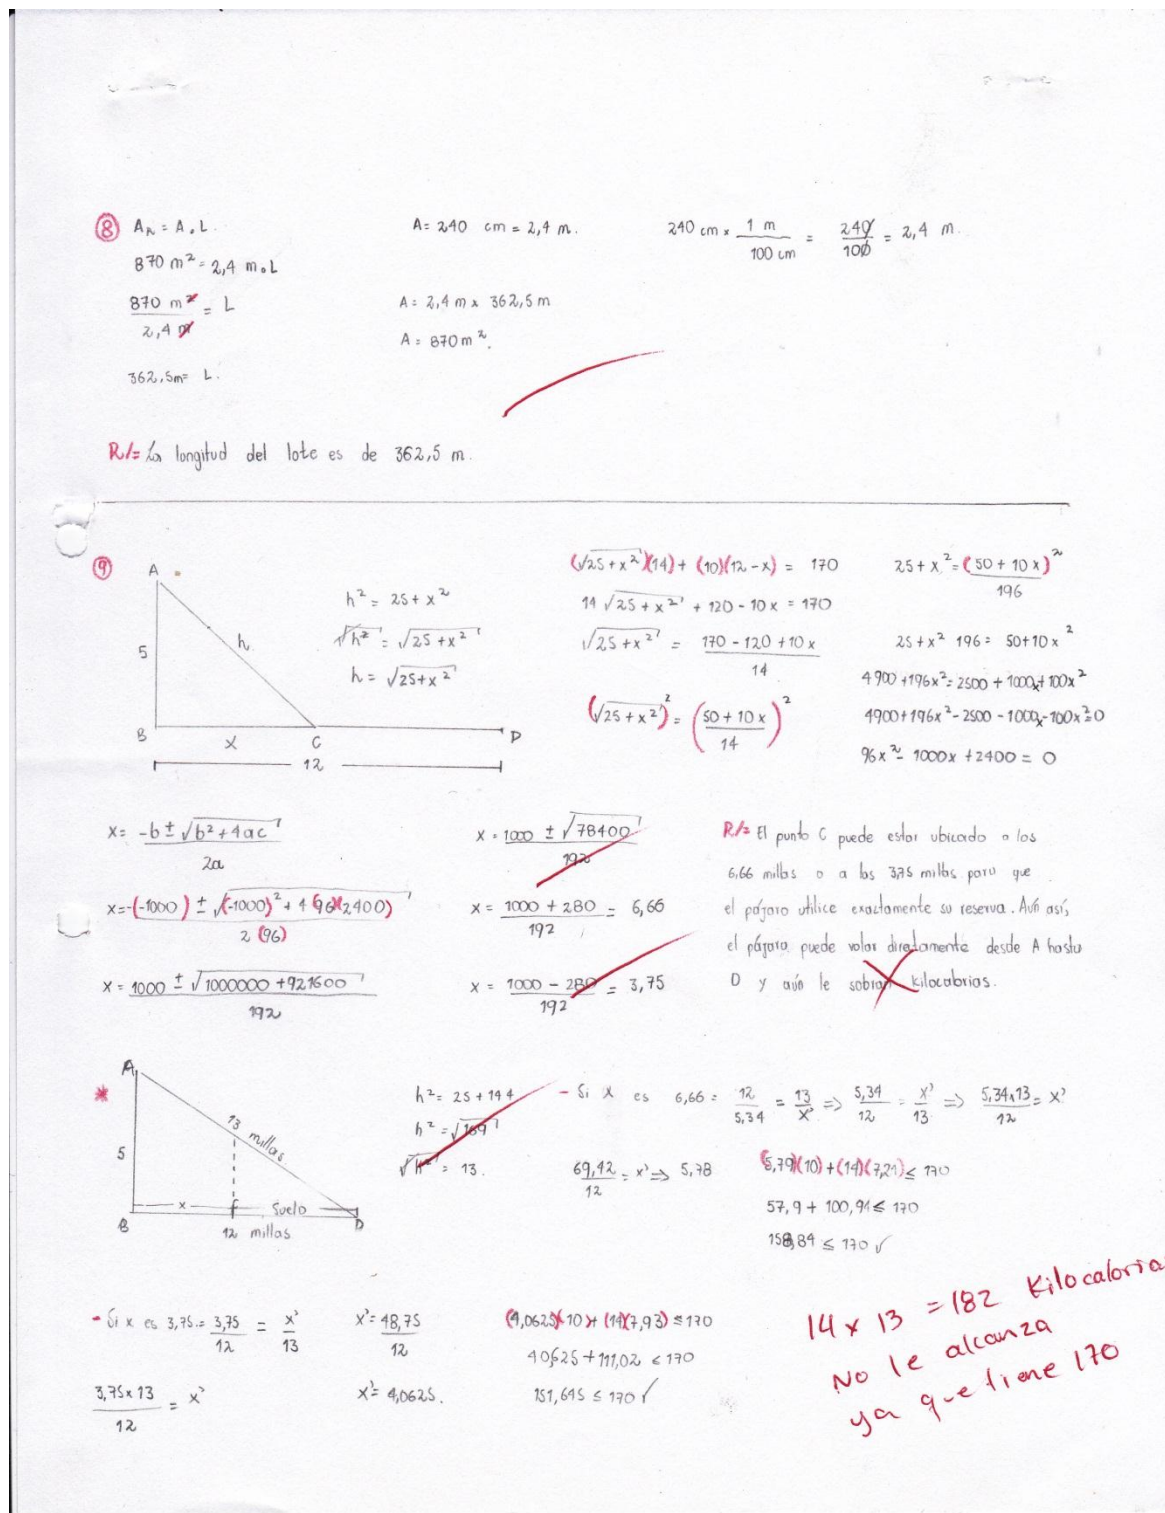 ⑧ A_A = A . L.
A = 240 cm = 2,4 m.
240 cm x 1 m / 100 cm = 240 / 100 = 2,4 m.
870 m² = 2,4 m . L
870 m² / 2,4 m = L
A = 2,4 m x 362,5 m
A = 870 m².
362,5m = L.
R/= La longitud del lote es de 362,5 m.
⑨
A
5
h
B
x
C
D
12
h² = 25 + x²
√h² = √25 + x²
h = √25+x²
(√25+x²)(14) + (10)(12-x) = 170
14 √25+x² + 120 - 10x = 170
√25+x² = 170 - 120 + 10x / 14
(√25+x²)² = (50 + 10x / 14)²
25 + x² = (50 + 10x)² / 196
25 + x² 196 = 50+10x²
4900 + 196x² = 2500 + 1000x + 100x²
4900 + 196x² - 2500 - 1000x - 100x² = 0
96x² - 1000x + 2400 = 0
x = -b ± √b² + 4ac / 2a
x = -(-1000) ± √(-1000)² + 4 (96)(2400) / 2 (96)
x = 1000 ± √1000000 + 921600 / 192
x = 1000 ± √78400 / 192
x = 1000 + 280 / 192 = 6,66
x = 1000 - 280 / 192 = 3,75
R/= El punto C puede estar ubicado a los
6,66 millas o a las 3,75 millas para que
el pájaro utilice exactamente su reserva. Aún así,
el pájaro puede volar directamente desde A hasta
D y aún le sobran kilocalorias.
*
A
5
13 millas
x
Suelo
B
D
12 millas
h² = 25 + 144
h² = √169
√h² = 13.
- Si x es 6,66 = 12 / 5,34 = 13 / x' => 5,34 / 12 = x' / 13 => 5,34x13 / 12 = x'
69,42 / 12 = x' => 5,78
(5,79)(10) + (14)(7,21) ≤ 170
57,9 + 100,94 ≤ 170
158,84 ≤ 170 ✓
- Si x es 3,75 = 3,75 / 12 = x' / 13
3,75x13 / 12 = x'
x' = 48,75 / 12
x' = 4,0625.
(4,0625)(10) + (14)(7,93) ≤ 170
40,625 + 111,02 ≤ 170
151,645 ≤ 170 ✓
14 x 13 = 182 Kilocaloria
No le alcanza
ya que tiene 170